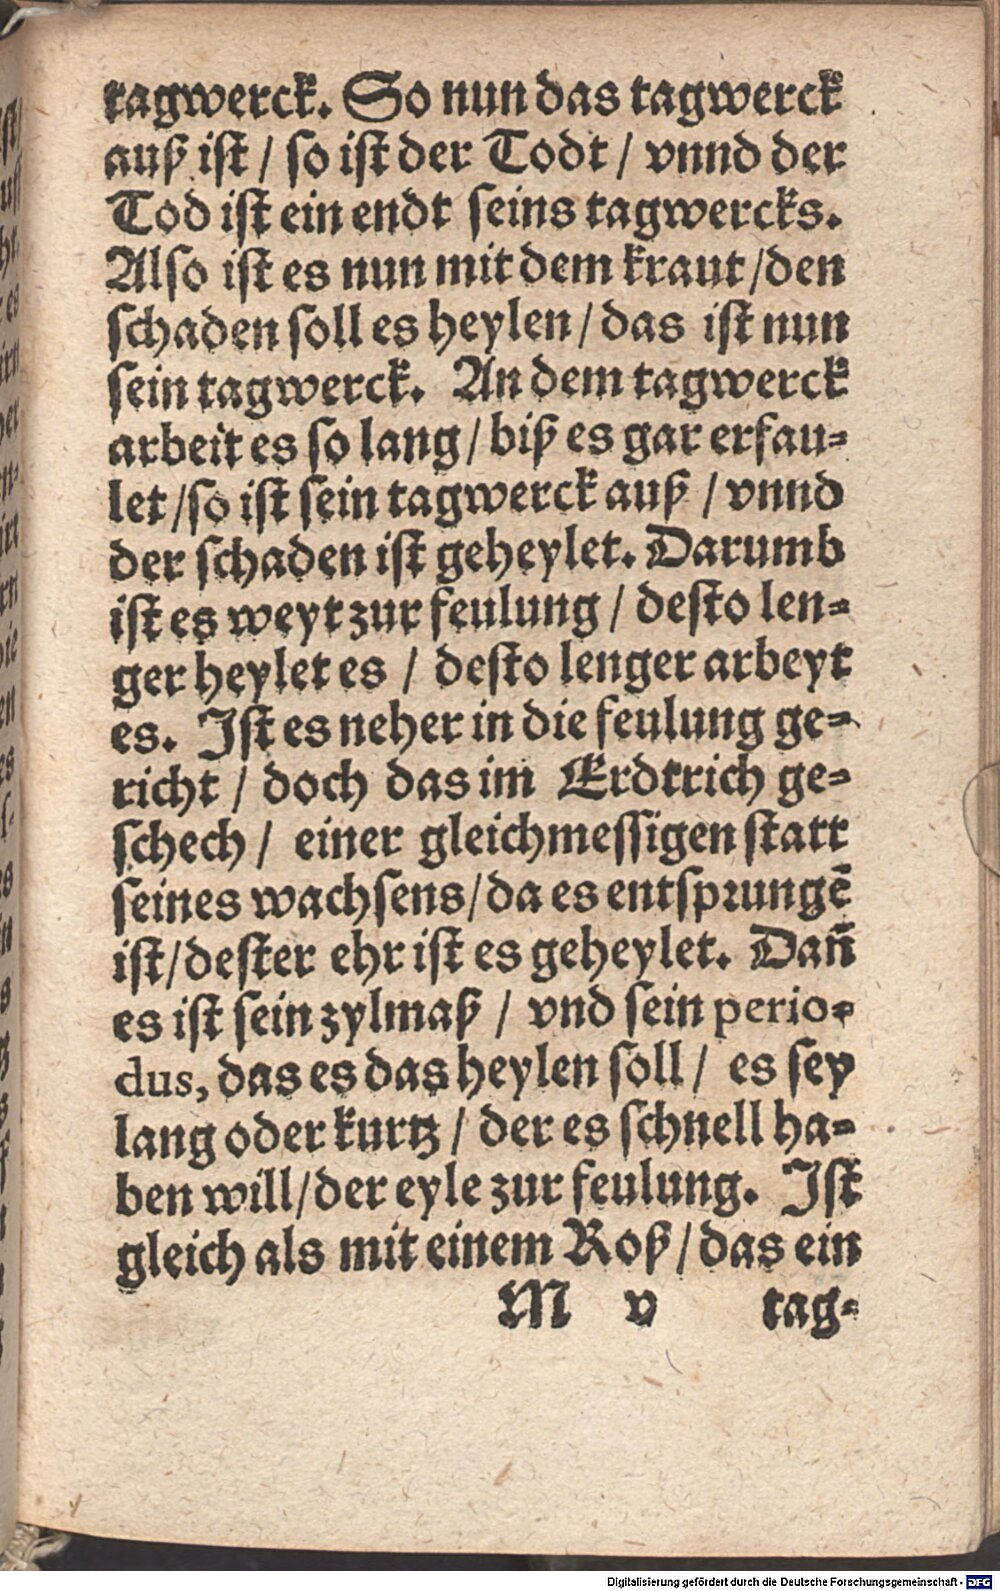 tagwerck. So nun das tagwerck
auß ist / so ist der Todt / vnnd der
Tod ist ein endt seins tagwercks.
Also ist es nun mit dem kraut /den
schaden soll es heylen / das ist nun
sein tagwerck. An dem tagwerck
arbeit es so lang / biß es gar erfau⸗
let /so ist sein tagwerck auß / vnnd
der schaden ist geheylet. Darumb
ist es weyt zur feulung / desto len⸗
ger heylet es / desto lenger arbeyt
es. Ist es neher in die feulung ge⸗
richt / doch das im Erdtrich ge⸗
schech / einer gleichmessigen statt
seines wachsens/da es entsprungē
ist/dester ehr ist es geheylet. Dañ
es ist sein zylmaß / vnd sein perio⸗
dus, das es das heylen soll / es sey
lang oder kurtz / der es schnell ha⸗
ben will/der eyle zur feulung. Ist
gleich als mit einem Roß / das ein
M v tag⸗
Digitalisierung gefördert durch die Deutsche Forschungsgemeinschaft - DFG